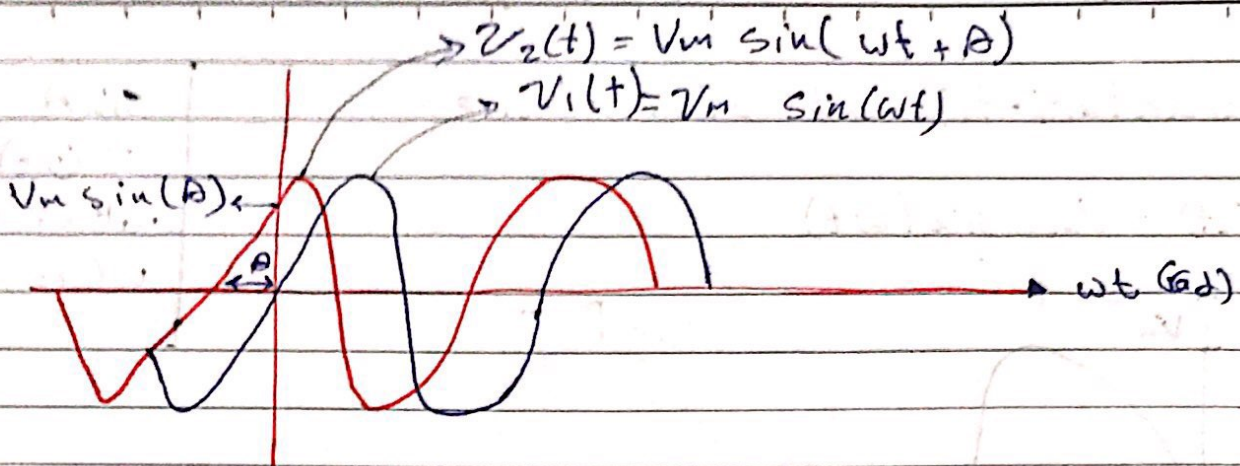 v₂(t) = Vm sin( wt + θ)
v₁(t) = Vm sin(wt)
Vm sin(θ)
θ
wt (rad)